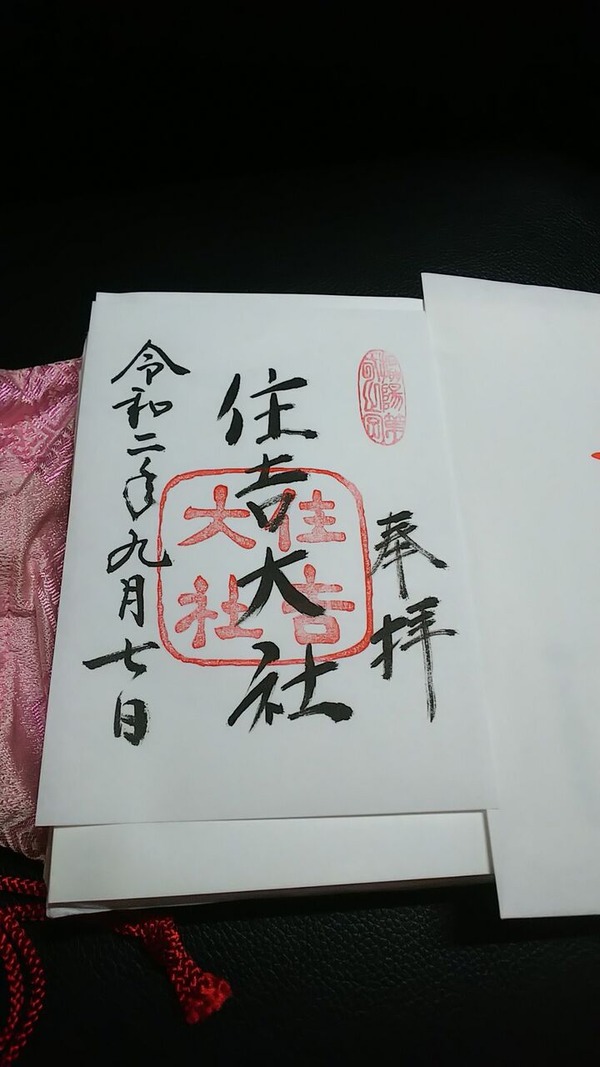 奉拝
住吉大社
住吉
大社
令和二年九月七日